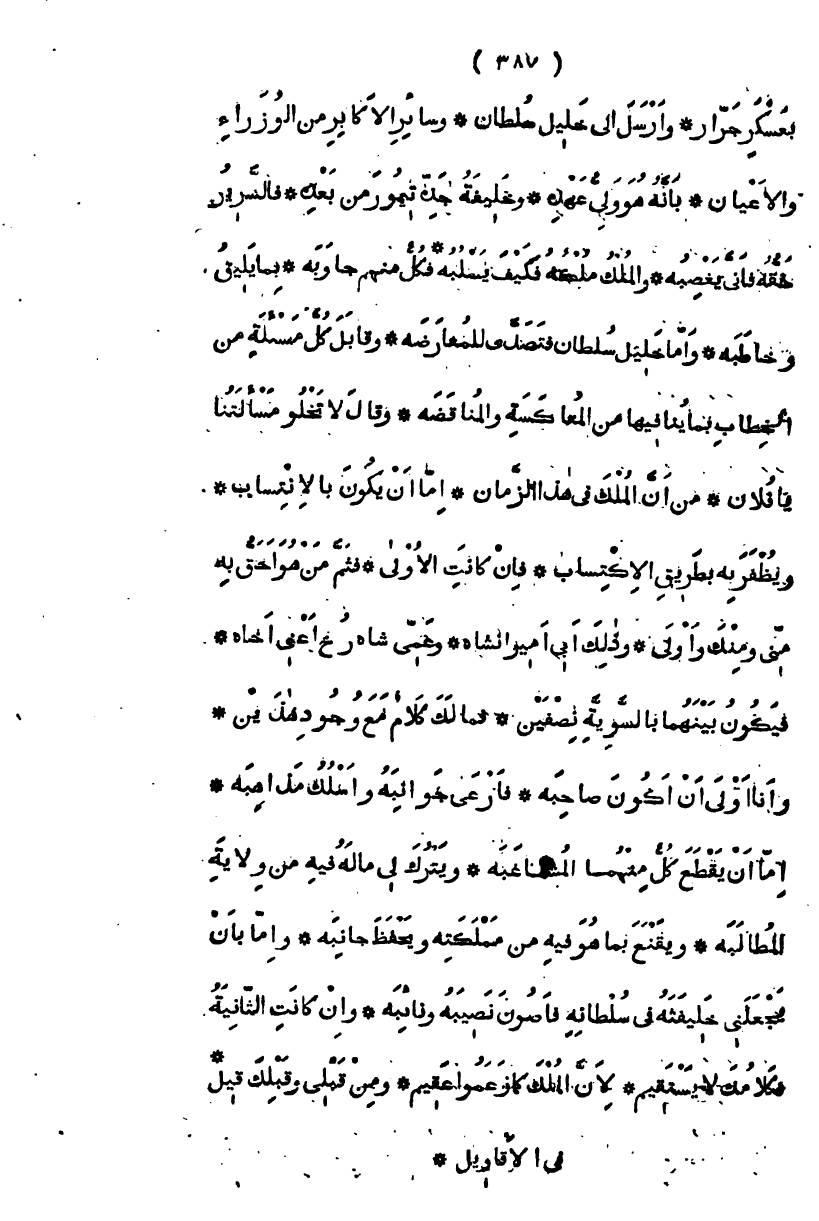 ( ٣٨٧ )
بعَسْكَرٍ جَرّار * وَأَرْسَلَ الى خَلِيل سُلطان * وسائِرِ الاَكابِرِ من الوُزَراءِ
والاَعْيان * بِاَنَّهُ هُوَ وَلِىُّ عَهْدِهِ * وخَلِيفَةُ جَدِّهِ تِيمُورَ من بَعْدِهِ * فالسَّرِيرُ
حَقُّهُ فَانَّى يَغْصِبُه * والمُلْكُ مُلْكُهُ فكَيْفَ يَسْلُبُه * فكُلٌّ منهم جاوَبَه * بما يَلِيقُ
وخاطَبَه * وَاَمّا خَلِيل سُلطان فتَصَدَّى للمُعارَضَه * وقابَلَ كُلَّ مَسْئَلَةٍ من
الخِطابِ بِما يُنافِيها من المُعاكَسَةِ والمُناقَضَه * وقالَ لا تَخْلُو مَسْأَلَتُنا
يا فُلان * من اَنَّ المُلْكَ فى هٰذا الزَّمان * اِمّا اَنْ يَكُونَ بالاِنْتِساب *
ويُظْفَرَ بِه بطَرِيقِ الاِكْتِساب * فاِنْ كانَتِ الاُوْلى * فثَمَّ مَنْ هُوَ اَحَقُّ بِه
مِنّى ومِنْكَ وَاَوْلَى * وذٰلِكَ اَبِى اَمِيرانشاه * وعَمِّى شاه رُخ اَعْنِى اَخاه *
فيَكُونُ بَيْنَهُما بالسَّوِيَّةِ نِصْفَيْن * فما لَكَ كَلامٌ مَعَ وُجُودِ هٰذَيْن *
وَاَنا اَوْلَى اَنْ اَكُونَ صاحِبَه * فاَرْعَى جَوانِبَهُ واَسْلُكُ مَذاهِبَه *
اِمّا اَنْ يَقْطَعَ كُلٌّ مِنْهُما المُشاغَبَه * ويَتْرُكَ لِى مالَهُ فيهِ من وِلايَةِ
المُطالَبَه * ويَقْنَعَ بما هُوَ فيهِ من مَمْلَكَتِه ويَحْفَظَ جانِبَه * وامّا باَنْ
يَجْعَلَنِى خَلِيفَتَهُ فى سُلْطانِهِ فاَصُونَ نَصِيبَهُ ونائِبَه * واِنْ كانَتِ الثّانِيَةُ
فكَلامُكَ لا يَسْتَقِيم * لِاَنَّ المُلْكَ كما زَعَمُوا عَقِيم * ومِنْ قَبْلِى وقَبْلِكَ قِيلَ *
فى الاَقاوِيل *